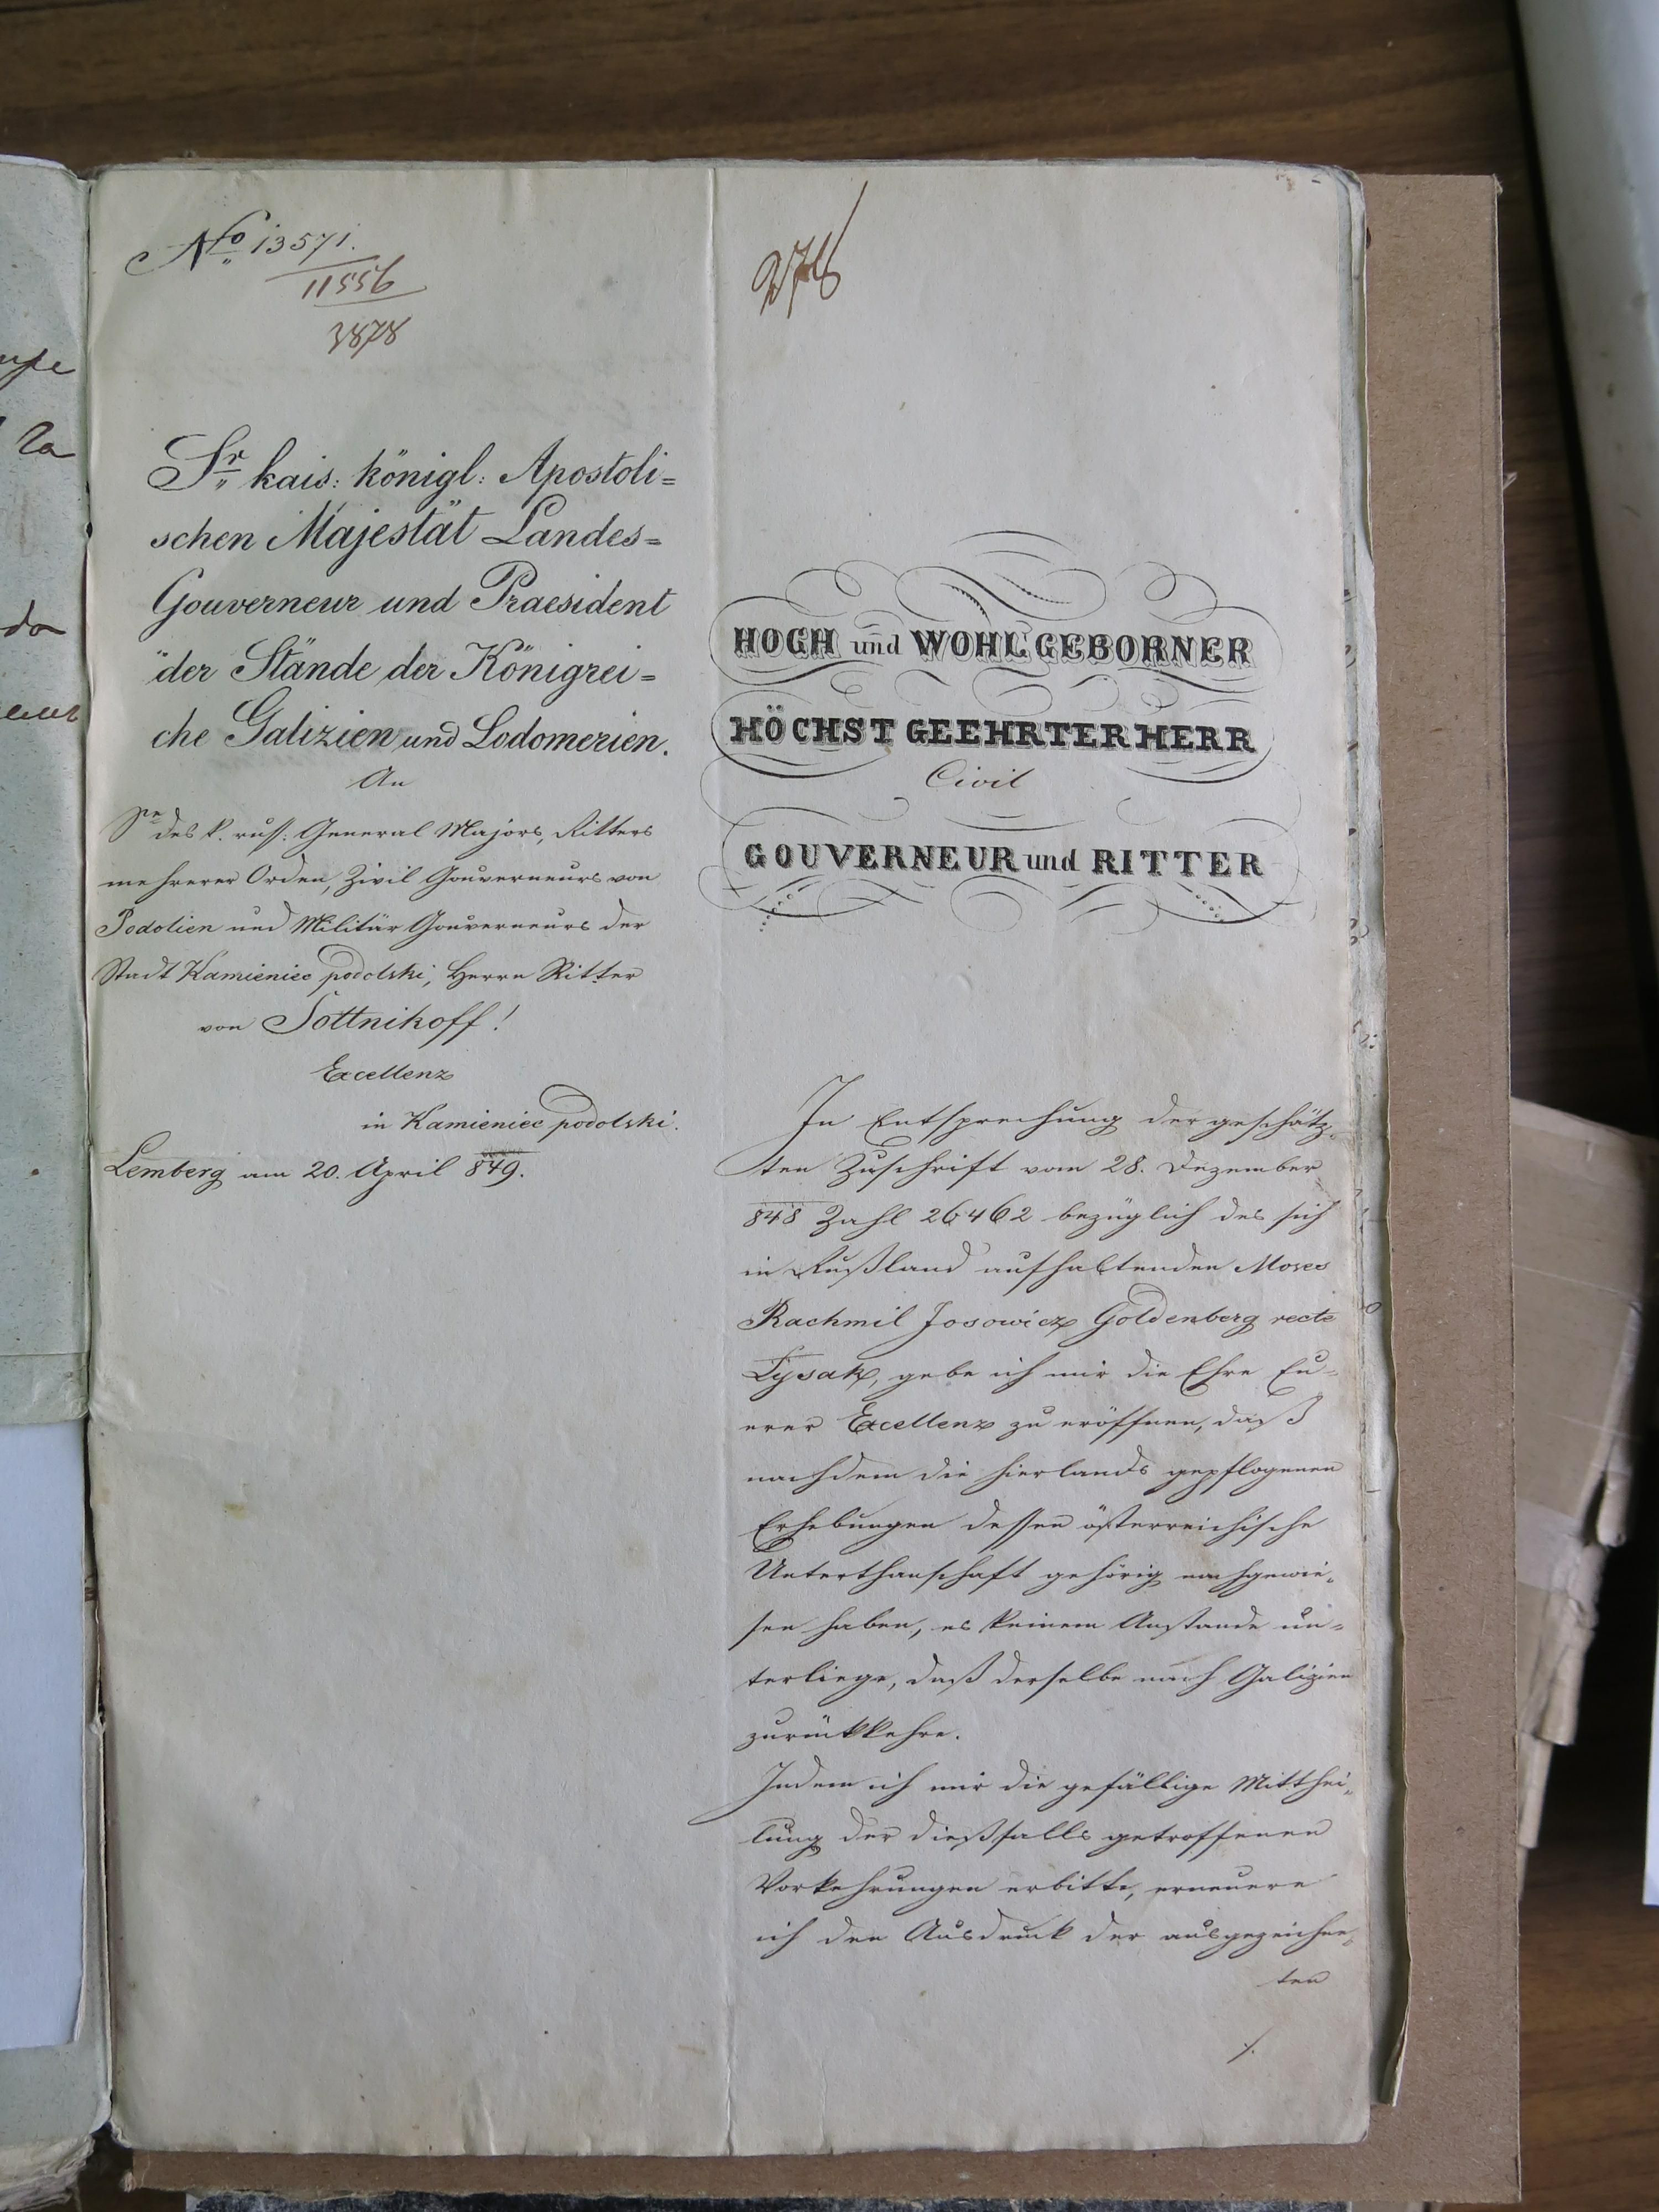 No 13571.
11556
3878
Sr kais: königl: Apostoli=
schen Majestät Landes=
Gouverneur und Praesident
der Stände der Königrei=
che Galizien und Lodomerien.
An
Se des k. russ: General Majors, Ritters
mehrerer Orden, Zivil Gouverneurs von
Podolien und Militär Gouverneurs der
Stadt Kamieniec podolski, Herrn Ritter
von Sottnikoff!
Excellenz
in Kamieniec podolski.
Lemberg am 20. April 849.
HOCH und WOHLGEBORNER
HÖCHST GEEHRTER HERR
Civil
GOUVERNEUR und RITTER
In Entsprechung der geschätz=
ten Zuschrift vom 28. Dezember
848 Zahl 26462 bezüglich des sich
in Rußland aufhaltenden Moses
Rachmil Josowicz Goldenberg recte
Lysak, gebe ich mir die Ehre Eu=
erer Excellenz zu eröffnen, daß
nachdem die hierlands gepflogenen
Erhebungen dessen österreichische
Unterthanschaft gehörig nachgewie=
sen haben, es keinem Anstande un=
terliege, daß derselbe nach Galizien
zurückkehre.
Indem ich mir die gefällige Mitthei=
lung der dießfalls getroffenen
Vorkehrungen erbitte, erneuere
ich den Ausdruck der ausgezeichne=
ten